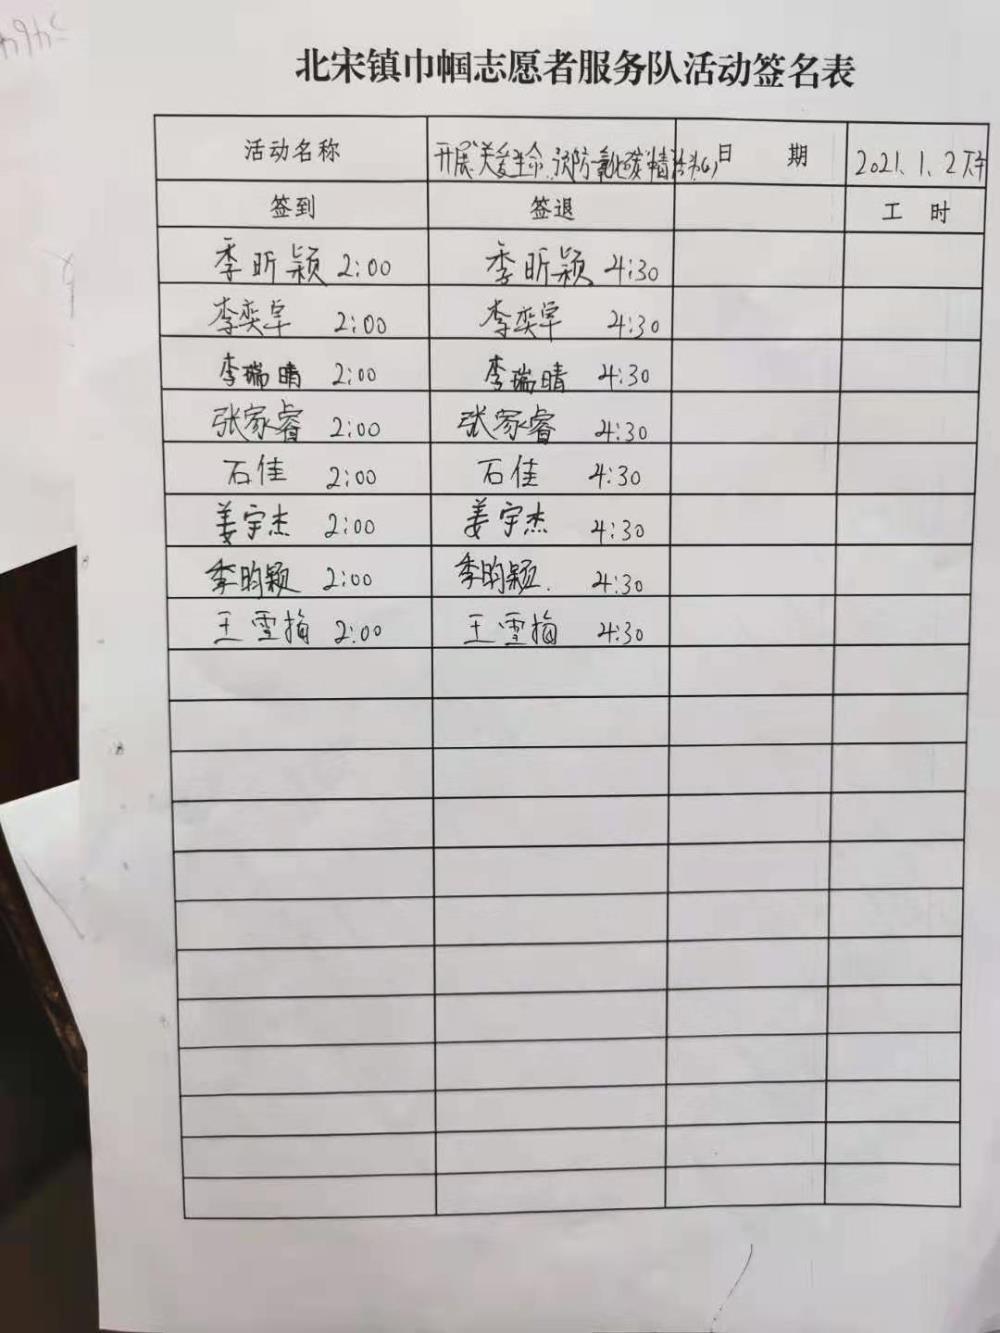 北宋镇巾帼志愿者服务队活动签名表
活动名称 开展"关爱生命,预防氧化碳 日 期 2021.1.2下午
签到 签退 工 时
季昕颖 2:00 季昕颖 4:30
李奕卓 2:00 李奕卓 4:30
李瑞晴 2:00 李瑞晴 4:30
张家睿 2:00 张家睿 4:30
石佳 2:00 石佳 4:30
姜宇杰 2:00 姜宇杰 4:30
季昀颖 2:00 季昀颖. 4:30
王雪梅 2:00 王雪梅 4:30